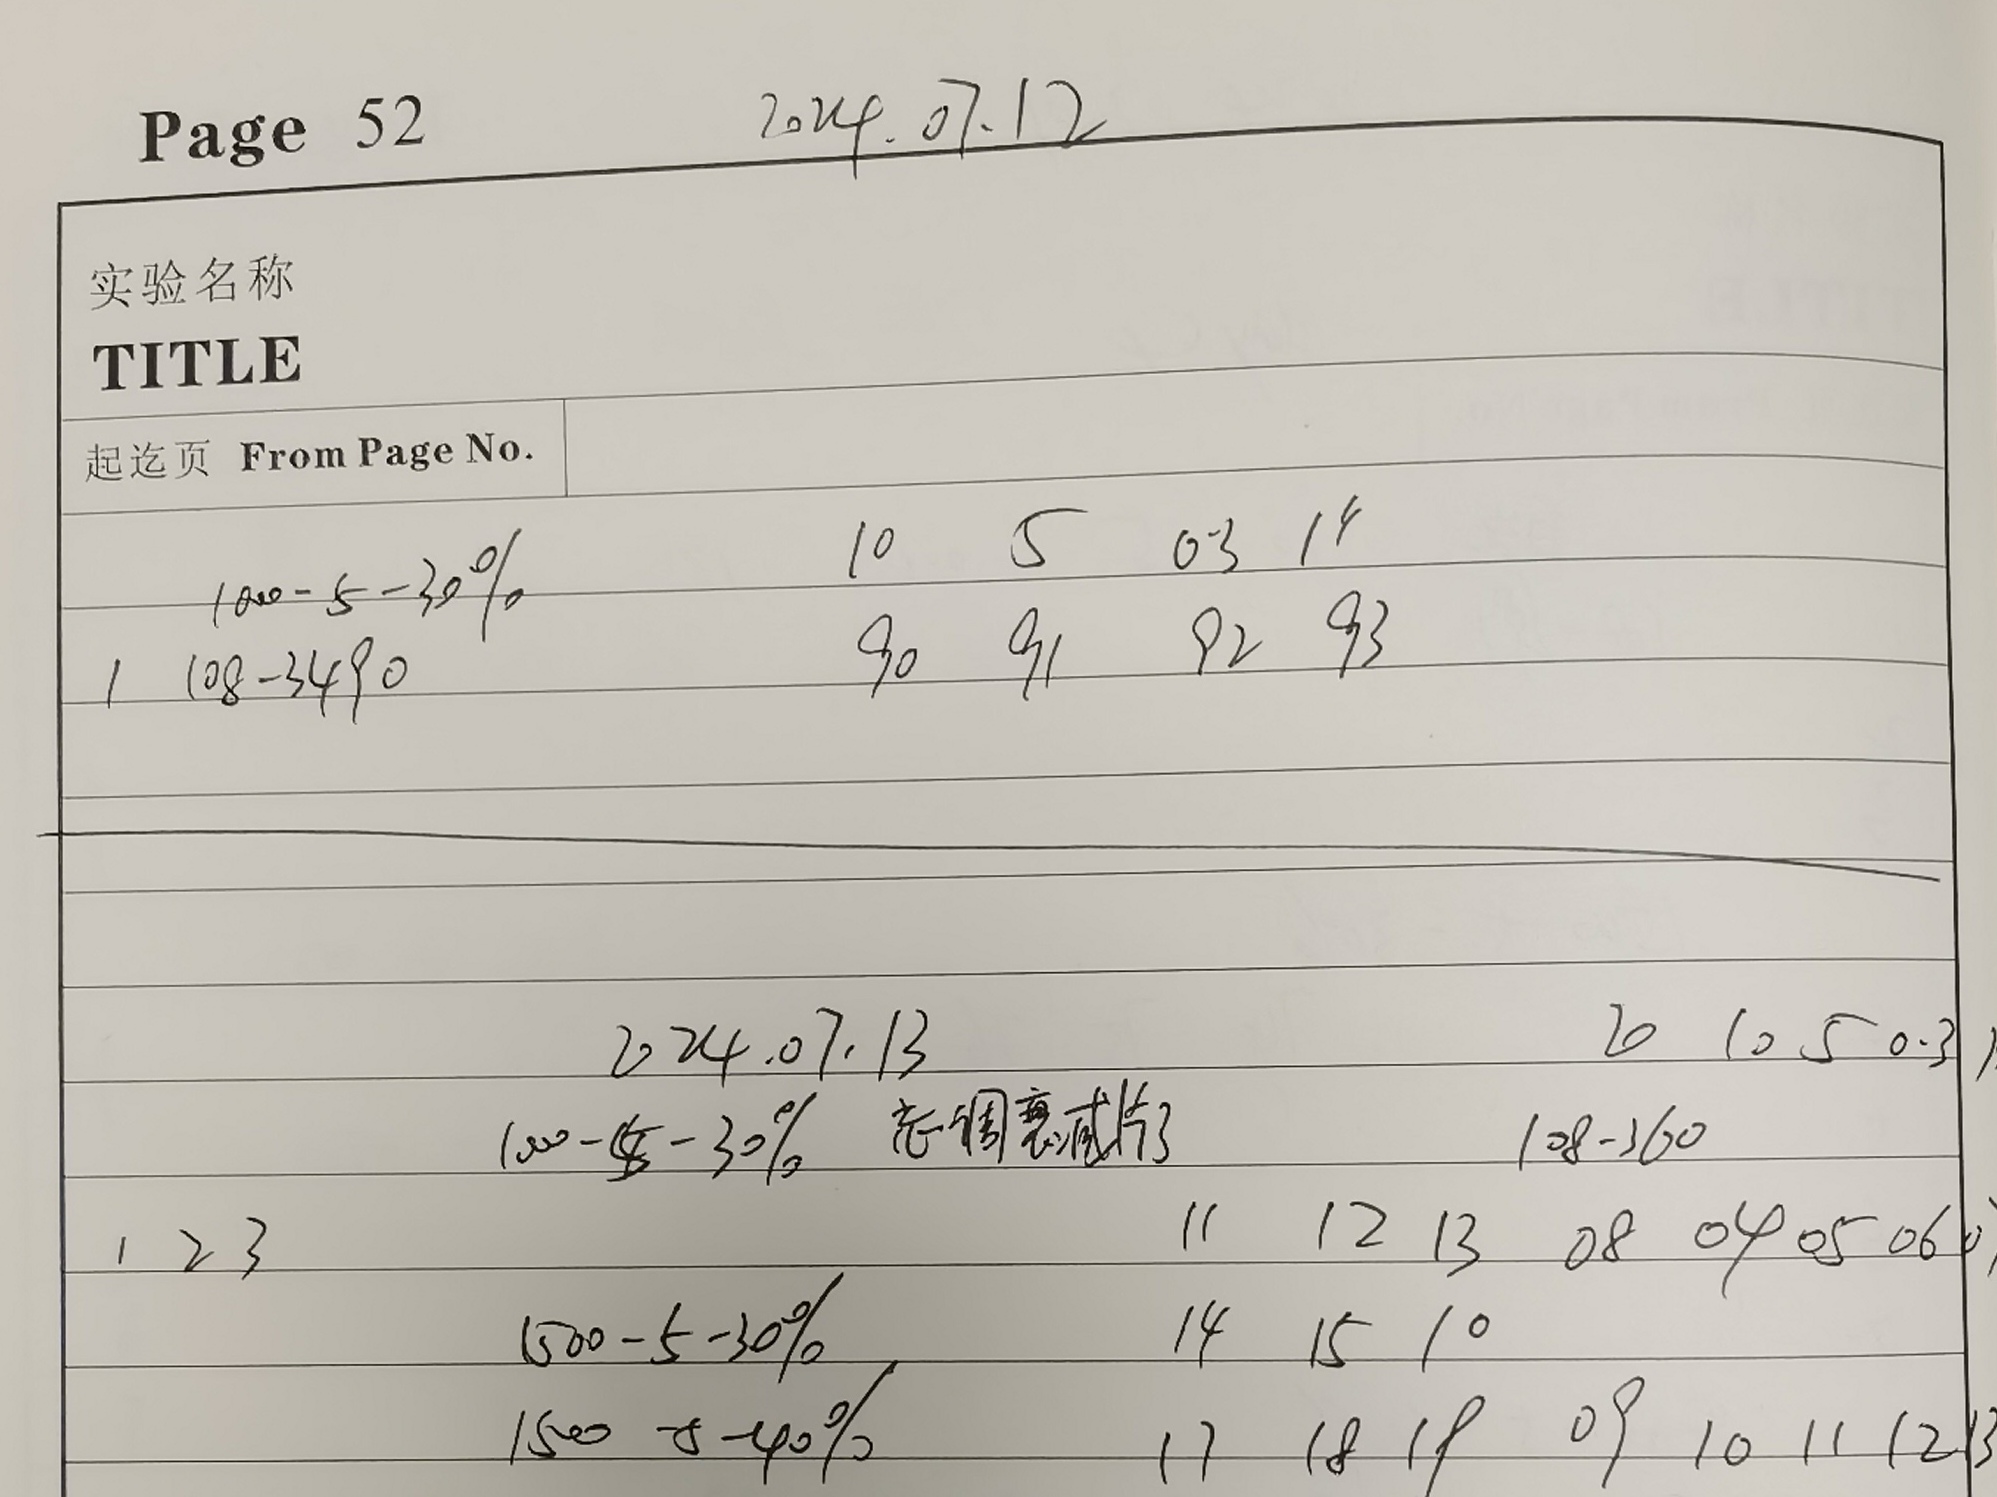 Page 52 2024.07.12
实验名称
TITLE
起迄页 From Page No.
10 5 0.3 14
1000-5-30%
90 91 92 93
1 108-3490
2024.07.13 20 10 5 0.3
1000-5-30% 忘调衰减片了 108-360
1 2 3 11 12 13 08 04 05 06 07
1500-5-30% 14 15 10
1500-5-40% 17 18 19 09 10 11 12 13